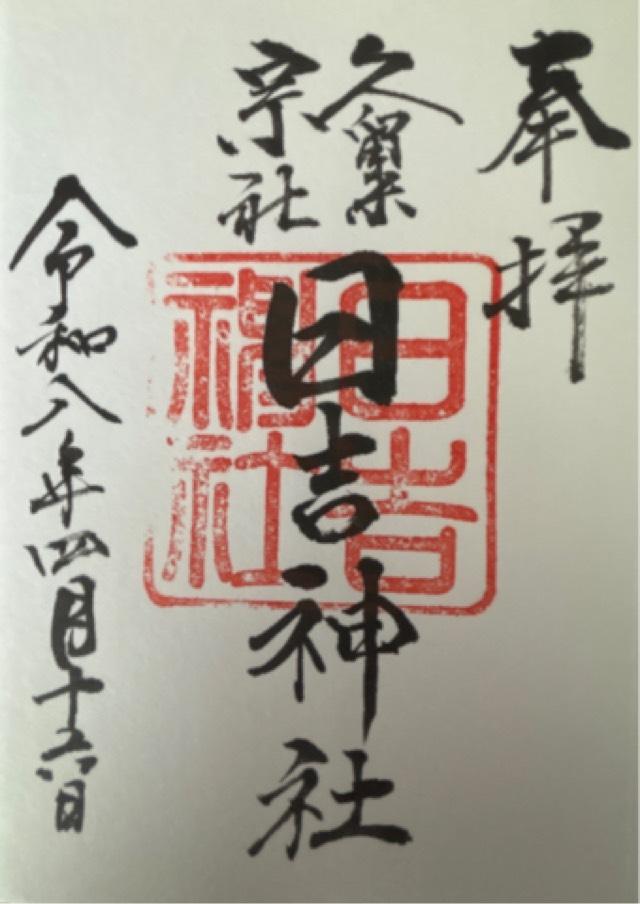 奉拝
久留米
宗社
日吉神社
日吉神社
令和八年四月十六日